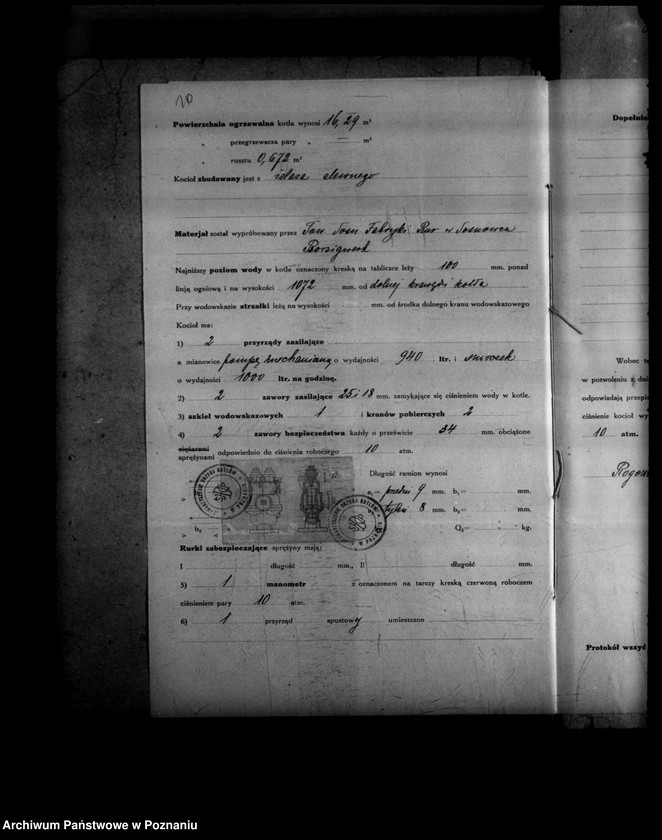 10
Powierzchnia ogrzewalna kotła wynosi 16,29 m²
„ przegrzewacza pary „ — m²
„ rusztu 0,672 m²
Kocioł zbudowany jest z żelaza zlewnego
Materjał został wypróbowany przez Tow Sosn Fabryki Rur w Sosnowcu
Borsigwerk
Najniższy poziom wody w kotle oznaczony kreską na tabliczce leży 100 mm. ponad
linją ogniową i na wysokości 1072 mm. od dolnej krawędzi kotła
Przy wodowskazie strzałki leżą na wysokości mm. od środka dolnego kranu wodowskazowego
Kocioł ma:
1) 2 przyrządy zasilające
a mianowicie pompę mechaniczną o wydajności 940 ltr. i smoczek
o wydajności 1000 ltr. na godzinę.
2) 2 zawory zasilające 25 i 18 mm. zamykające się ciśnieniem wody w kotle.
3) szkieł wodowskazowych 1 i kranów pobierczych 2
4) 2 zawory bezpieczeństwa każdy o prześwicie 34 mm. obciążone
ciężarami
sprężynami odpowiednio do ciśnienia roboczego 10 atm.
Długość ramion wynosi
przedni 9 mm. b₁= mm.
tylni 8 mm. b₂= mm.
b₂
Q₂= kg.
Rurki zabezpieczające sprężyny mają:
I długość mm., II długość mm.
5) 1 manometr z oznaczonem na tarczy kreską czerwoną roboczem
ciśnieniem pary 10 atm.
6) 1 przyrząd spustowy umieszczon
Dopełnie
Wobec te
w pozwoleniu z dni
odpowiadają przepis
ciśnienie kocioł wy
10 atm.
Rogoź
Protokół wszyd
Archiwum Państwowe w Poznaniu